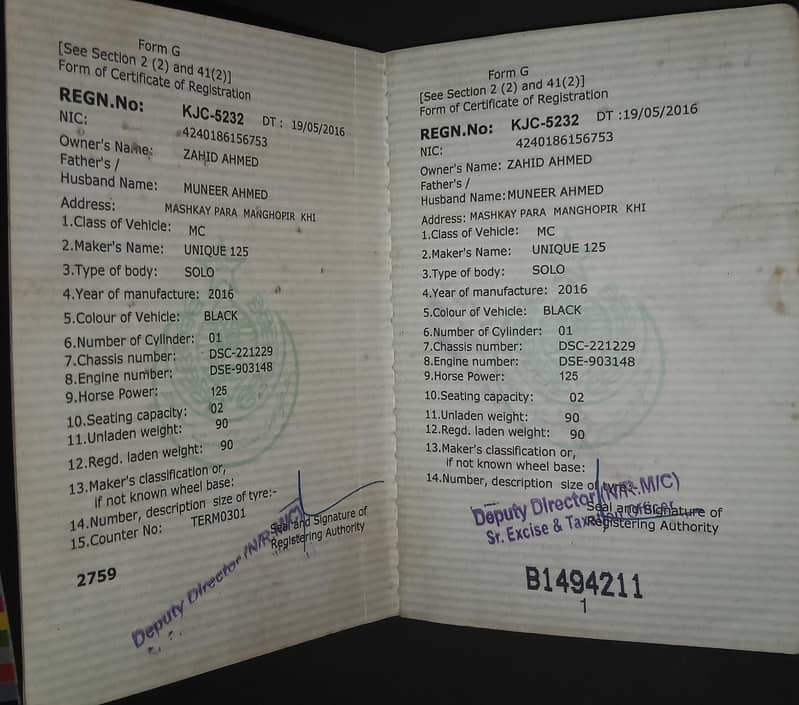 Form G
[See Section 2 (2) and 41(2)]
Form of Certificate of Registration
REGN.No: KJC-5232 DT : 19/05/2016
NIC: 4240186156753
Owner's Name: ZAHID AHMED
Father's /
Husband Name: MUNEER AHMED
Address: MASHKAY PARA MANGHOPIR KHI
1.Class of Vehicle: MC
2.Maker's Name: UNIQUE 125
3.Type of body: SOLO
4.Year of manufacture: 2016
5.Colour of Vehicle: BLACK
6.Number of Cylinder: 01
7.Chassis number: DSC-221229
8.Engine number: DSE-903148
9.Horse Power: 125
10.Seating capacity: 02
11.Unladen weight: 90
12.Regd. laden weight: 90
13.Maker's classification or,
if not known wheel base:
14.Number, description size of tyre:-
15.Counter No: TERM0301
Seal and Signature of
Registering Authority
2759
Deputy Director (N/R.MIC)
Form G
[See Section 2 (2) and 41(2)]
Form of Certificate of Registration
REGN.No: KJC-5232 DT :19/05/2016
NIC: 4240186156753
Owner's Name: ZAHID AHMED
Father's /
Husband Name: MUNEER AHMED
Address: MASHKAY PARA MANGHOPIR KHI
1.Class of Vehicle: MC
2.Maker's Name: UNIQUE 125
3.Type of body: SOLO
4.Year of manufacture: 2016
5.Colour of Vehicle: BLACK
6.Number of Cylinder: 01
7.Chassis number: DSC-221229
8.Engine number: DSE-903148
9.Horse Power: 125
10.Seating capacity: 02
11.Unladen weight: 90
12.Regd. laden weight: 90
13.Maker's classification or,
if not known wheel base:
14.Number, description size of tyre:-
Deputy Director (N/R.MIC)
Seal and Signature of
Sr. Excise & Taxation Officer
Registering Authority
B1494211
1